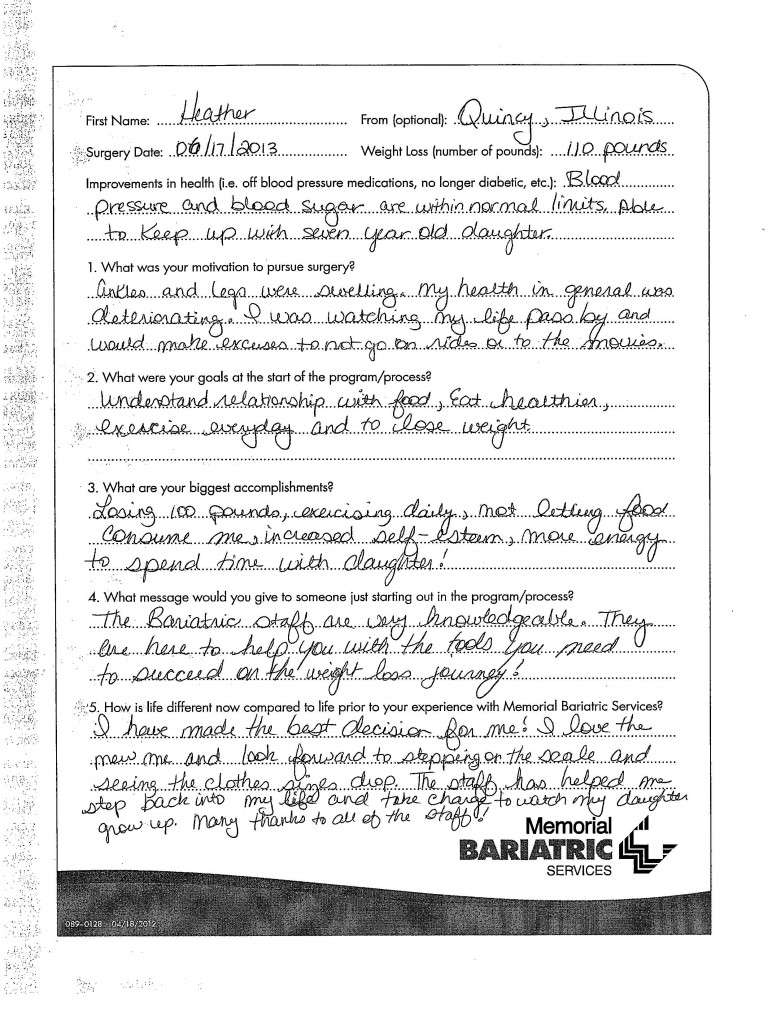 First Name: Heather From (optional): Quincy, Illinois
Surgery Date: 06/17/2013 Weight Loss (number of pounds): 110 pounds
Improvements in health (i.e. off blood pressure medications, no longer diabetic, etc.): Blood
pressure and blood sugar are within normal limits. Able
to keep up with seven year old daughter.
1. What was your motivation to pursue surgery?
Ankles and legs were swelling. My health in general was
deteriorating. I was watching my life pass by and
would make excuses to not go on rides or to the movies.
2. What were your goals at the start of the program/process?
Understand relationship with food, Eat healthier,
exercise everyday and to lose weight.
3. What are your biggest accomplishments?
Losing 100 pounds, exercising daily, not letting food
consume me, increased self-esteem, more energy
to spend time with daughter!
4. What message would you give to someone just starting out in the program/process?
The Bariatric staff are very knowledgeable. They
are here to help you with the tools you need
to succeed on the weight loss journey!
5. How is life different now compared to life prior to your experience with Memorial Bariatric Services?
I have made the best decision for me! I love the
new me and look forward to stepping on the scale and
seeing the clothes sizes drop. The staff has helped me
step back into my life and take charge to watch my daughter
grow up. Many thanks to all of the staff!
Memorial
BARIATRIC
SERVICES
089-0128 04/18/2012